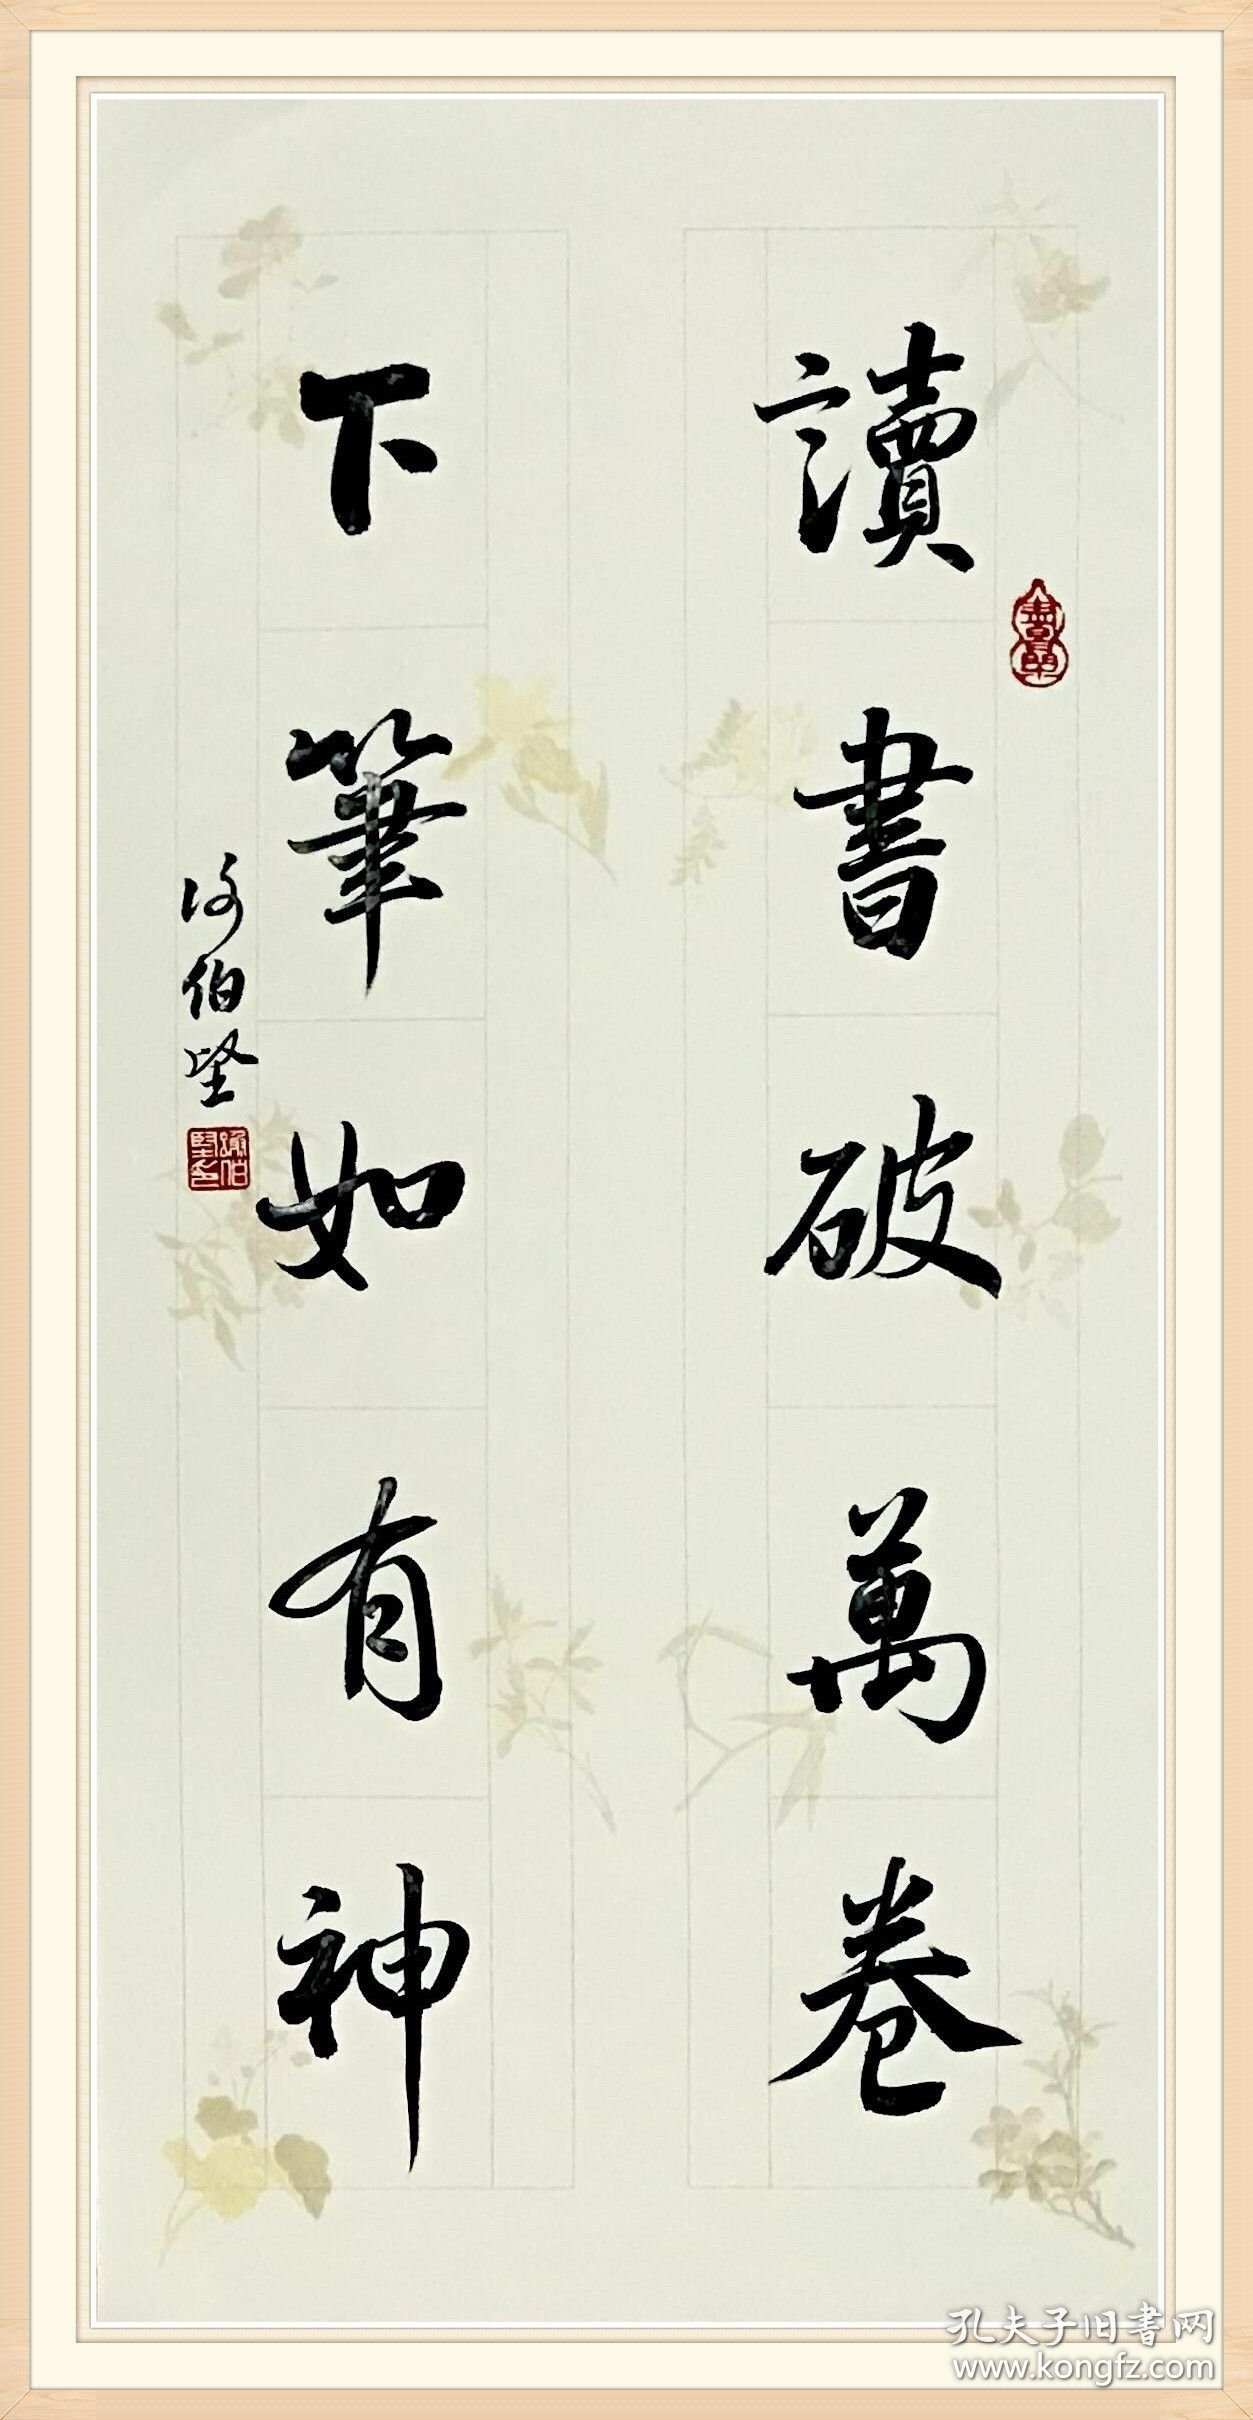 讀書破萬卷
下筆如有神
伯堅
孔夫子旧書网
www.kongfz.com